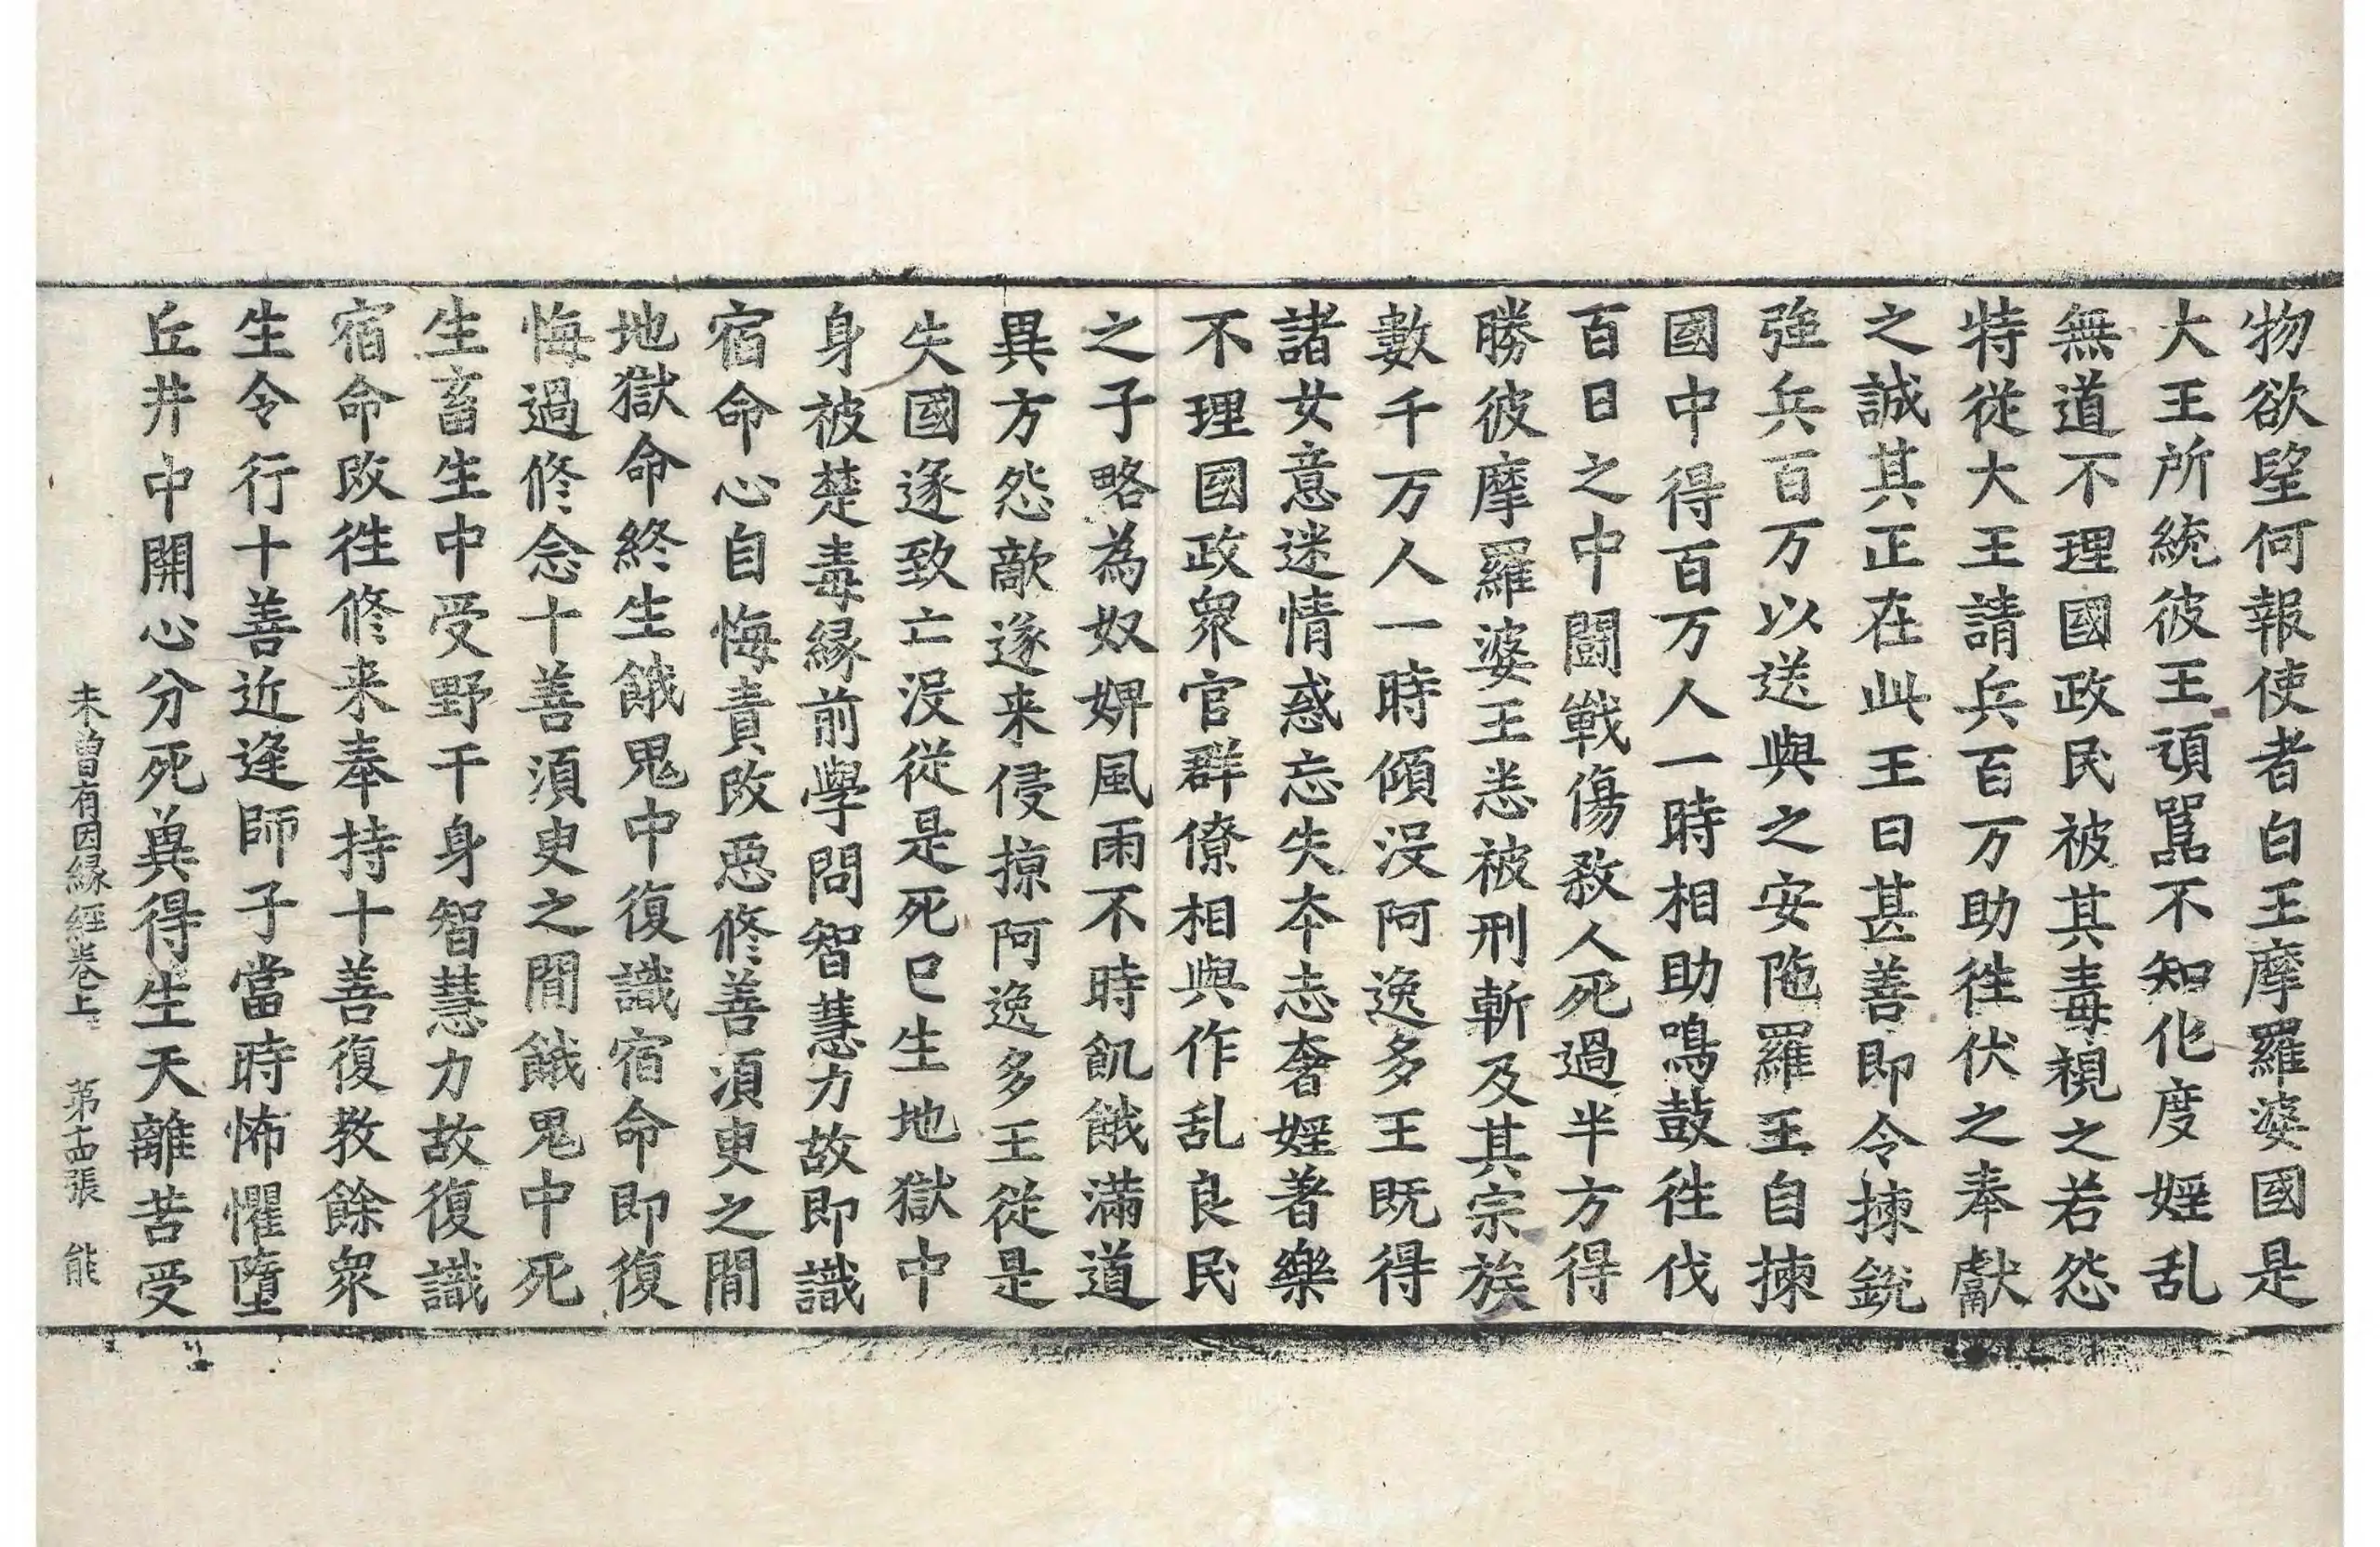 物欲望何報使者白王摩羅婆國是
大王所統彼王頑嚚不知化度婬乱
無道不理國政民被其毒視之若怨
特従大王請兵百万助往伏之奉獻
之誠其正在此王曰甚善即令揀銳
強兵百万以送與之安陁羅王自揀
國中得百万人一時相助鳴鼓往伐
百日之中鬪戰傷煞人死過半方得
勝彼摩羅婆王悉被刑斬及其宗族
數千万人一時傾没阿逸多王既得
諸女意迷情惑忘失本志奢婬著樂
不理國政衆官群僚相與作乱良民
之子略為奴婢風雨不時飢餓滿道
異方怨敵遂来侵掠阿逸多王従是
失國遂致亡没従是死已生地獄中
身被楚毒縁前學問智慧力故即識
宿命心自悔責改惡修善湏臾之間
地獄命終生餓鬼中復識宿命即復
悔過修念十善湏臾之間餓鬼中死
生畜生中受野干身智慧力故復識
宿命改往修来奉持十善復教餘衆
生令行十善近逢師子當時怖懼墮
丘井中開心分死兾得生天離苦受
未曾有因縁經卷上 第十四張 能